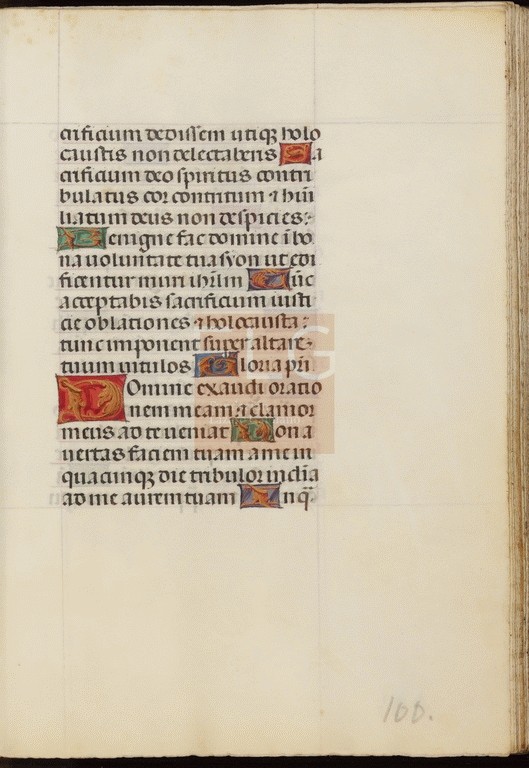 crificium dedissem utiqꝫ holo
caustis non delectaberis Sa
crificium deo spiritus contri
bulatus cor contritum ⁊ hūi
liatum deus non despicies:
Benigne fac domine ī bo
na uoluntate tua syon ut edi
ficentur muri ihrl̄m Tūc
acceptabis sacrificium iusti
cie oblationes ⁊ holocausta:
tunc imponent super altare
tuum uitulos Gloria pri̅
Domine exaudi oratio
nem meam ⁊ clamor
meus ad te ueniat Non a
uertas faciem tuam a me in
quacunqꝫ die tribulor inclīa
ad me aurem tuam In qͣ
LG
100.